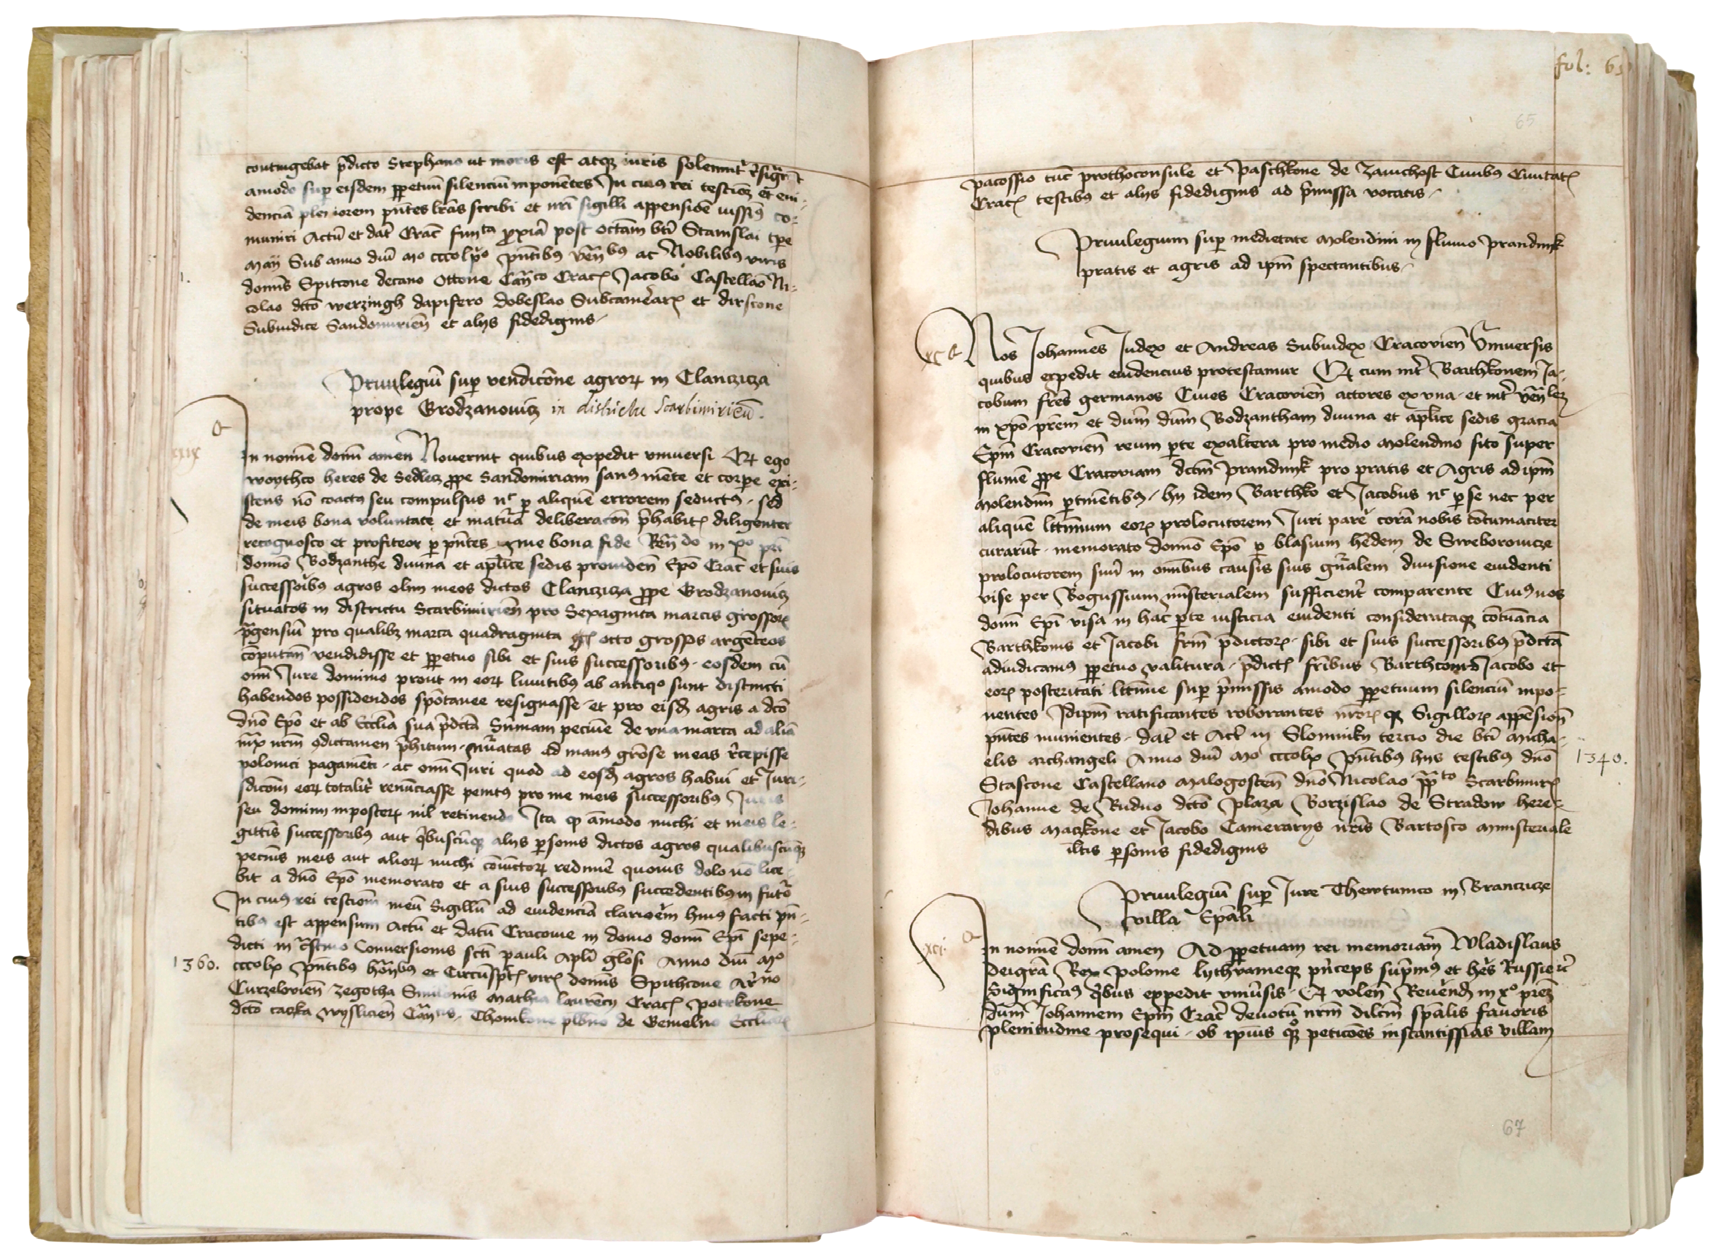 contingebat p̄dicto Stephano ut moris est atq̨ iuris solemnit̄
amodo sup eisdem ꝑpetuū silenciū inponētes In cuiꝰ rei testioȝ et eui-
denciā pleniorem p̄ntes lr̄as scribi et nr̄i sigilli appensiōe iussimꝰ co-
muniri Actū et dat̄ Crac̄ post octauā bt̄i Stanislai tp̄e
Maij Sub anno dn̄i Mo cccolx p̄ntibꝰ ac Nobilibꝰ viris
domīs Spitcone decano Ottone Crac̄ Jacobo Castellāo Ni-
colao dc̄to werzingh dapifero dobeslao Subcamēar et dirscone
Subiudice Sandomirieñ et alijs fidedignis
Priuilegiū sup vendicōne agroꝝ in Clanczicza
prope Grodzanouicz in districtu Scarbimirieñ.
xxix
In nomīe domī amen Nouerint quibus expedit vniuersi Qꝫ ego
woythco heres de Sedlecz ꝓpe Sandomiriam sanꝰ mēte et corꝑe exi-
stens nō coactꝰ seu compulsus nc̄ ꝑ aliquē errorem seductꝰ sed
de mera bona voluntate et matura deliberacōn p̄habita diligenter
recognosco et profiteor ꝑ p̄ntes bona fide in xp̄o
domīo Bodzanthe diuina et apl̄ice sedis prouideñ Ep̄o Crac̄ et suis
successoribꝰ agros olim meos dictos Clanczicza ꝓpe Grodzanouicz
situatos in districtu Scarbimirieñ pro Sexaginta marcis grossoꝝ
p̄gensiū pro qualibꝫ marca quadraginta octo grossos argēteos
cōputan̄ vendidisse et ꝑpetuo sibi et suis successoribus eosdem cū
omī Jure dominio prout in eoꝝ limitibꝰ ab antiqo sunt distincti
habendos possidendos spōtanee resignasse et pro eisdꝫ agris a dc̄o
dn̄o Ep̄o et ab Eccl̄ia sua p̄dc̄ta Sūmam pecuīe de vna marca ad aliā
iux nr̄m 9dictamen p̄hitum nūatas ad manꝰ meas r̄cepisse
polonici pagamēti ac omī Juri quod ad eosdꝫ agros habui et Juri-
sdicōm eoꝝ totalit̄ renūciasse penitꝰ pro me meis successoribus Juris
seu dominij inposteꝝ nil retinendo Ita qꝫ amodo michi et meis le-
gittīs successoribus aut qibuscūqꝫ alijs ꝑsonis dictos agros qualibuscūqꝫ
pecūis meis aut alioꝝ michi cōiūctoꝝ redimē quouis dolo nō lice-
bit a dn̄o Ep̄o memorato et a suis successoribꝰ succedentibꝰ in futuꝝ
In cuiꝰ rei testiom̄ meū Sigillū ad euidenciā clariorem huiꝰ facti p̄n-
tibꝰ est appensum Actū et datū Cracouie in domo domī Ep̄i sepe-
dicti in Conuersionis sc̄ti pauli apl̄i gl̄osi Anno dn̄i Mo
1360.
cccolx p̄ntibus et Circūspc̄ viris domīs Spithcone
Curzelouieñ Zegotha Simonis Mathia laurēcij Crac̄ potrkone
dc̄to caska wyslicieñ Thomkone plb̄no de Bemelno Eccl̄iaꝝ
fol: 65
65
pacossio tūc prothoconsule et paschkone de Zauichost Ciuibꝰ Ciuitatꝭ
Crac̄ testibꝰ et alijs fidedignis ad p̄missa vocatis
Priuilegium sup medietate Molendini in fluuio prandnik
pratis et agris ad ip̄m spectantibus
xc
Nos Johannes Judex et Andreas Subiudex Cracouieñ Vniuersis
quibus expedit euidencius protestamur Qꝫ cum int̄ Barthkonem Ja-
cobum fres̄ germanos Ciues Cracouieñ actores ex vna et int̄ ven̄lez
in xp̄o prem̄ et dn̄m dn̄m Bodzantham diuina et apl̄ice sedis gracia
Ep̄m Cracouieñ reum ꝑte exaltera pro medio Molendino sito super
fluuiū ꝓpe Cracouiam dc̄tm prandnik pro pratis et Agris ad ip̄m
Molendinū ꝑtinētibꝰ hij idem Barthko et Jacobus nc̄ ꝑ se nec per
aliquē ltt̄imum eoꝝ prolocutorem Juri parē corā nobis cōtumaciter
curarūt memorato domīo Ep̄o ꝑ blasium hēdem de Streborouicze
prolocutorem suū in omībus causis suis gnālem diuisione euidenti
vise per Bogussium misterialem sufficient̄ comparente Cuiꝰ nos
domī Ep̄i visa in hac ꝑte iusticia euidenti considerataqꝫ cōtūacia
Barthkonis et Jacobi frm̄ p̄dictoꝝ sibi et suis successoribus p̄dc̄ta
adiudicamus ꝑpetuo valitura p̄dictis frībus Barthconi Jacobo et
eoꝝ posteritati ltt̄ime sup p̄missis amodo ꝑpetuum silenciū inpo-
nentes Idip̄m ratificantes roborantes nr̄oꝝ qꝫ Sigilloꝝ appēsioñ
p̄ntes munientes dat̄ et Act̄ in Slomniky tercio die bt̄i Micha-
elis archangeli Anno dn̄i Mo cccolx p̄ntibus hijs testibus dn̄o
1340.
Stascone Castellano Malogosteñ dn̄o Nicolao p̄p̄to Scarbimirꝝ
Johanne de Biduo dc̄to plaza Borzislao de Stradow here-
dibus Maczkone et Jacobo Camerarijs nr̄is Bartosco Ministeriale
iltis ꝑsonis fidedignis
Priuilegiū sup Jure Thewtunico in Branczicze
villa Ep̄ali
xci
In nomīe domī amen Ad ꝑpetuam rei memoriam Wladislaus
dei grā Rex polonie lythwanieqꝫ p̄nceps sup̄mꝰ et hēs Russie zc̄
Significamꝰ q̄bus expedit vniūsis Qꝫ volen̄ Reuerendꝫ in xo prēz
dn̄m Johannem Ep̄m Crac̄ deuotū nr̄m dilc̄m sp̄alis fauoris
plenitudine prosequi ob ipsius qꝫ peticōes instantissias villam
67